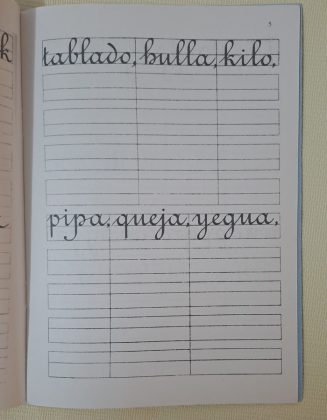 5
k
tablado, hulla, kilo.
pipa, queja, yegua.